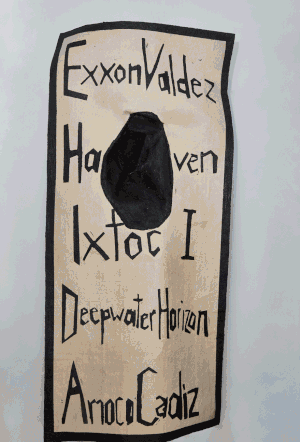 Exxon Valdez
Ha ven
Ixtoc I
Deepwater Horizon
Amoco Cadiz